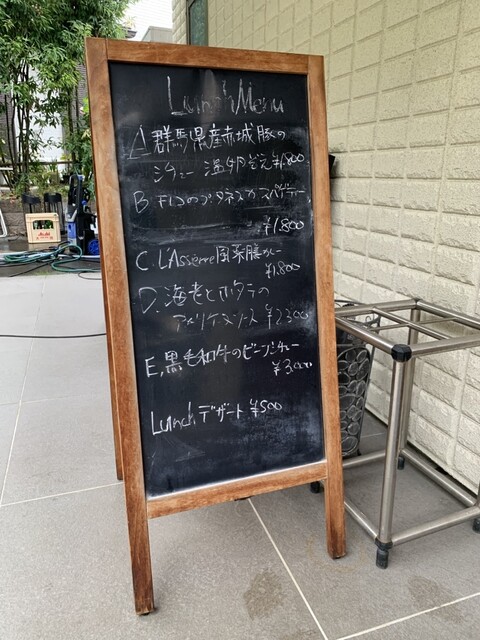 Lunch Menu
A 群馬県産赤城豚の
シチュー 温卵ぞえ ¥1,800
B. タコのプッタネスカ スパゲティー
¥1,800
C. L'Asserre風薬膳カレー
¥1,800
D. 海老とホタテの
アメリケーヌソース ¥2300
E, 黒毛和牛のビーフシチュー
¥3,000
Lunch デザート ¥500
Asahi